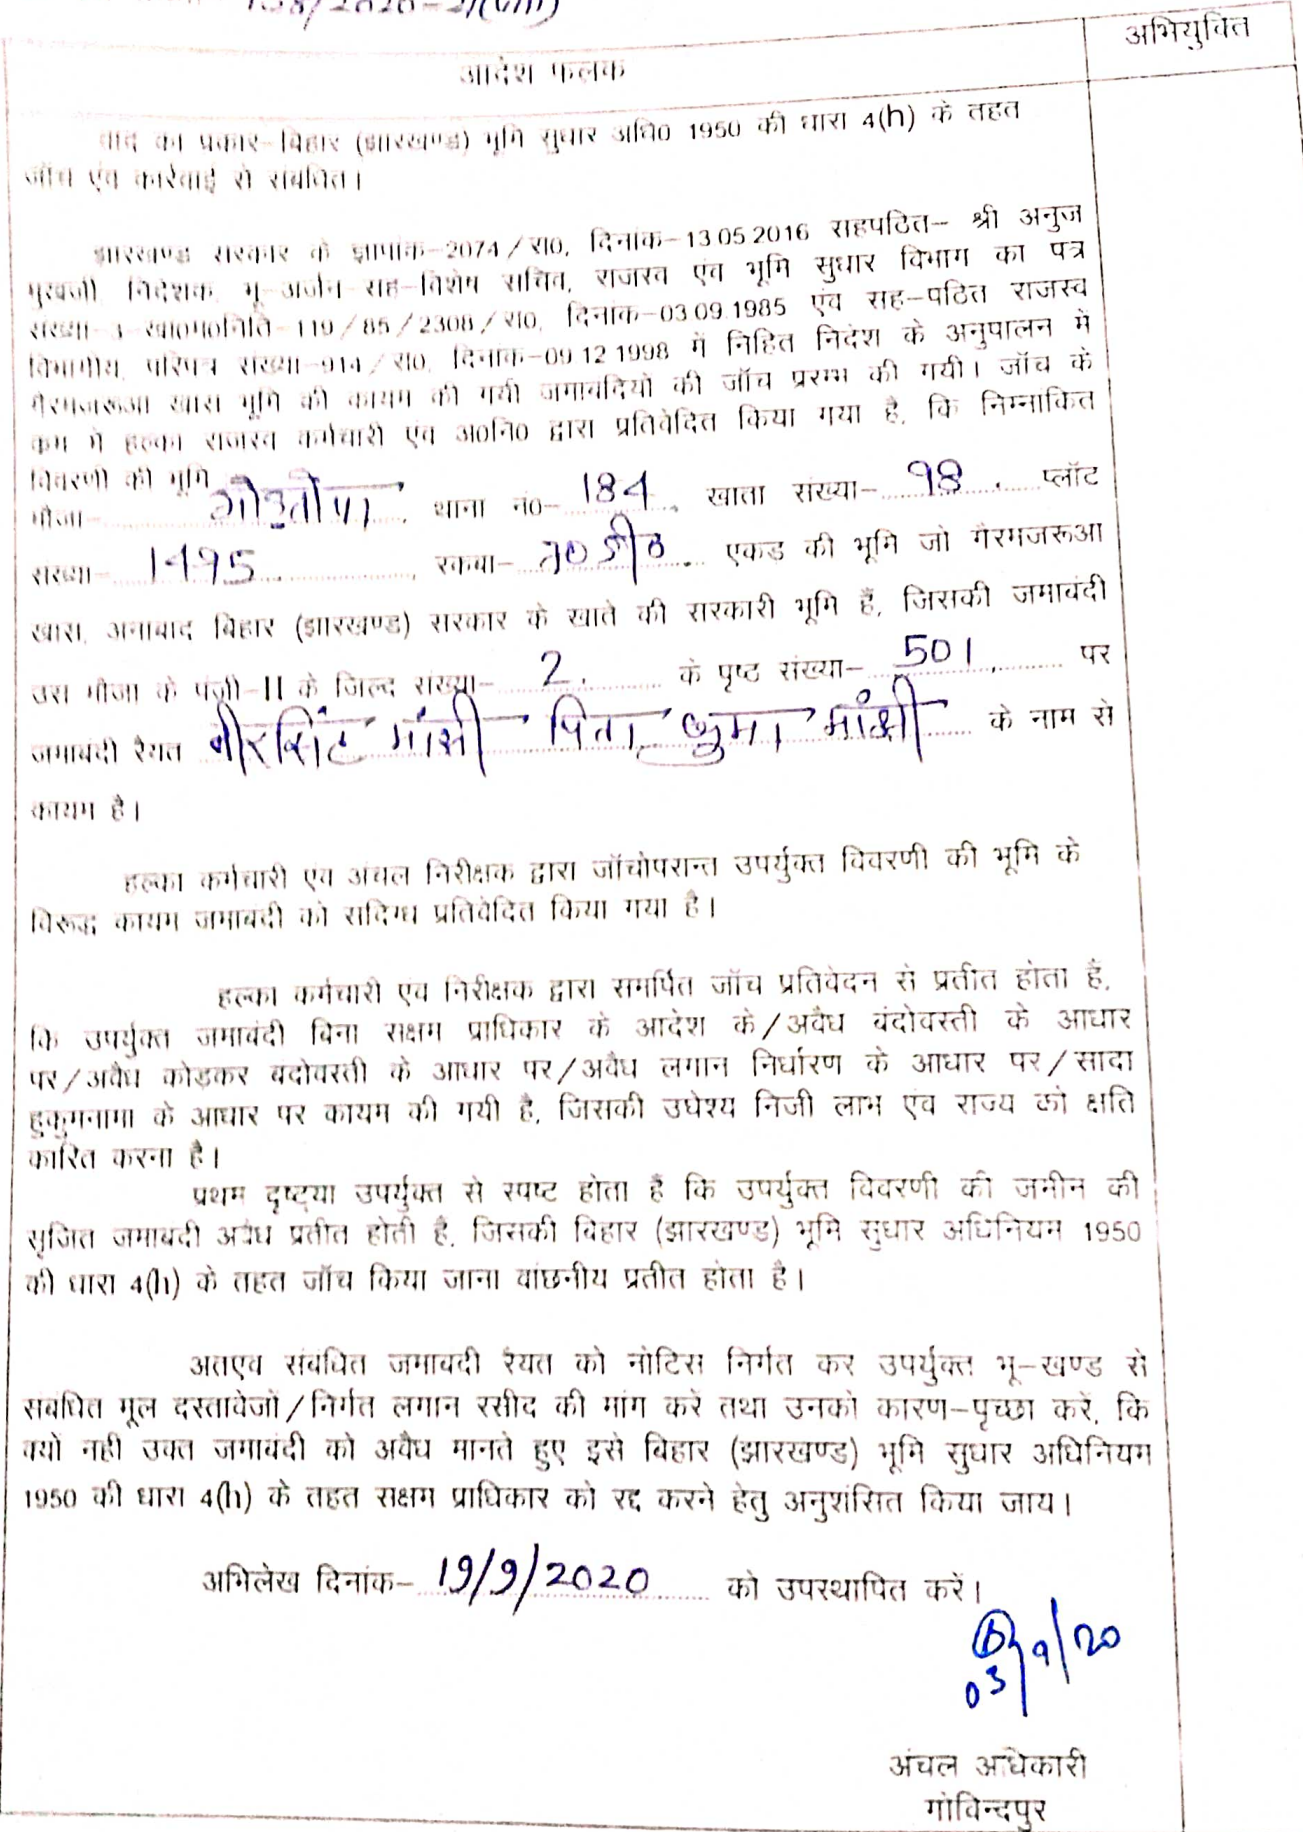 अभियुक्ति
आदेश फलक
वाद का प्रकार–बिहार (झारखण्ड) भूमि सुधार अधि0 1950 की धारा 4(h) के तहत
जॉच एंव कार्रवाई से संबधित।
झारखण्ड सरकार के ज्ञापांक–2074/रा0, दिनांक–13.05.2016 सहपठित– श्री अनुज
मुखर्जी, निदेशक, भू–अर्जन–सह–विशेष सचिव, राजस्व एंव भूमि सुधार विभाग का पत्र
संख्या–3–खा0म0निति–119/85/2308/रा0, दिनांक–03.09.1985 एंव सह–पठित राजस्व
विभागीय, परिपत्र संख्या–914/रा0, दिनांक–09.12.1998 में निहित निदेश के अनुपालन में
गैरमजरूआ खास भूमि की कायम की गयी जमाबंदियों की जॉच प्ररम्भ की गयी। जॉच के
कम में हल्का राजस्व कर्मचारी एंव अ0नि0 द्वारा प्रतिवेदित किया गया है, कि निम्नांकित
विवरणी की भूमि
मौजा– थाना नं0– 184, खाता संख्या– 98, प्लॉट
संख्या– 1495, रकवा– एकड की भूमि जो गैरमजरूआ
खास, अनाबाद बिहार (झारखण्ड) सरकार के खाते की सरकारी भूमि हैं, जिसकी जमाबंदी
उस मौजा के पंजी–II के जिल्द संख्या– 2. के पृष्ठ संख्या– 501, पर
जमाबंदी रैयत बीरसिंह मांझी पिता मांझी के नाम से
कायम है।
हल्का कर्मचारी एंव अंचल निरीक्षक द्वारा जॉचोपरान्त उपर्युक्त विवरणी की भूमि के
विरूद्ध कायम जमाबंदी को संदिग्ध प्रतिवेदित किया गया है।
हल्का कर्मचारी एंव निरीक्षक द्वारा समर्पित जॉच प्रतिवेदन से प्रतीत होता हैं,
कि उपर्युक्त जमाबंदी बिना सक्षम प्राधिकार के आदेश के/अवैध बंदोवस्ती के आधार
पर/अवैध कोड़कर बंदोवस्ती के आधार पर/अवैध लगान निर्धारण के आधार पर/सादा
हुकुमनामा के आधार पर कायम की गयी है, जिसकी उघेश्य निजी लाभ एंव राज्य को क्षति
कारित करना है।
प्रथम दृष्ट्या उपर्युक्त से स्पष्ट होता है कि उपर्युक्त विवरणी की जमीन की
सृजित जमाबंदी अवैध प्रतीत होती हैं, जिसकी बिहार (झारखण्ड) भूमि सुधार अधिनियम 1950
की धारा 4(h) के तहत जॉच किया जाना वांछनीय प्रतीत होता है।
अतएव संबंधित जमाबंदी रैयत को नोटिस निर्गत कर उपर्युक्त भू–खण्ड से
संबंधित मूल दस्तावेजों/निर्गत लगान रसीद की मांग करें तथा उनको कारण–पृच्छा करें, कि
क्यों नही उक्त जमाबंदी को अवैध मानते हुए इसे बिहार (झारखण्ड) भूमि सुधार अधिनियम
1950 की धारा 4(h) के तहत सक्षम प्राधिकार को रद्द करने हेतु अनुशंसित किया जाय।
अभिलेख दिनांक– 19/9/2020 को उपस्थापित करें।
03/9/20
अंचल अधिकारी
गोविन्दपुर